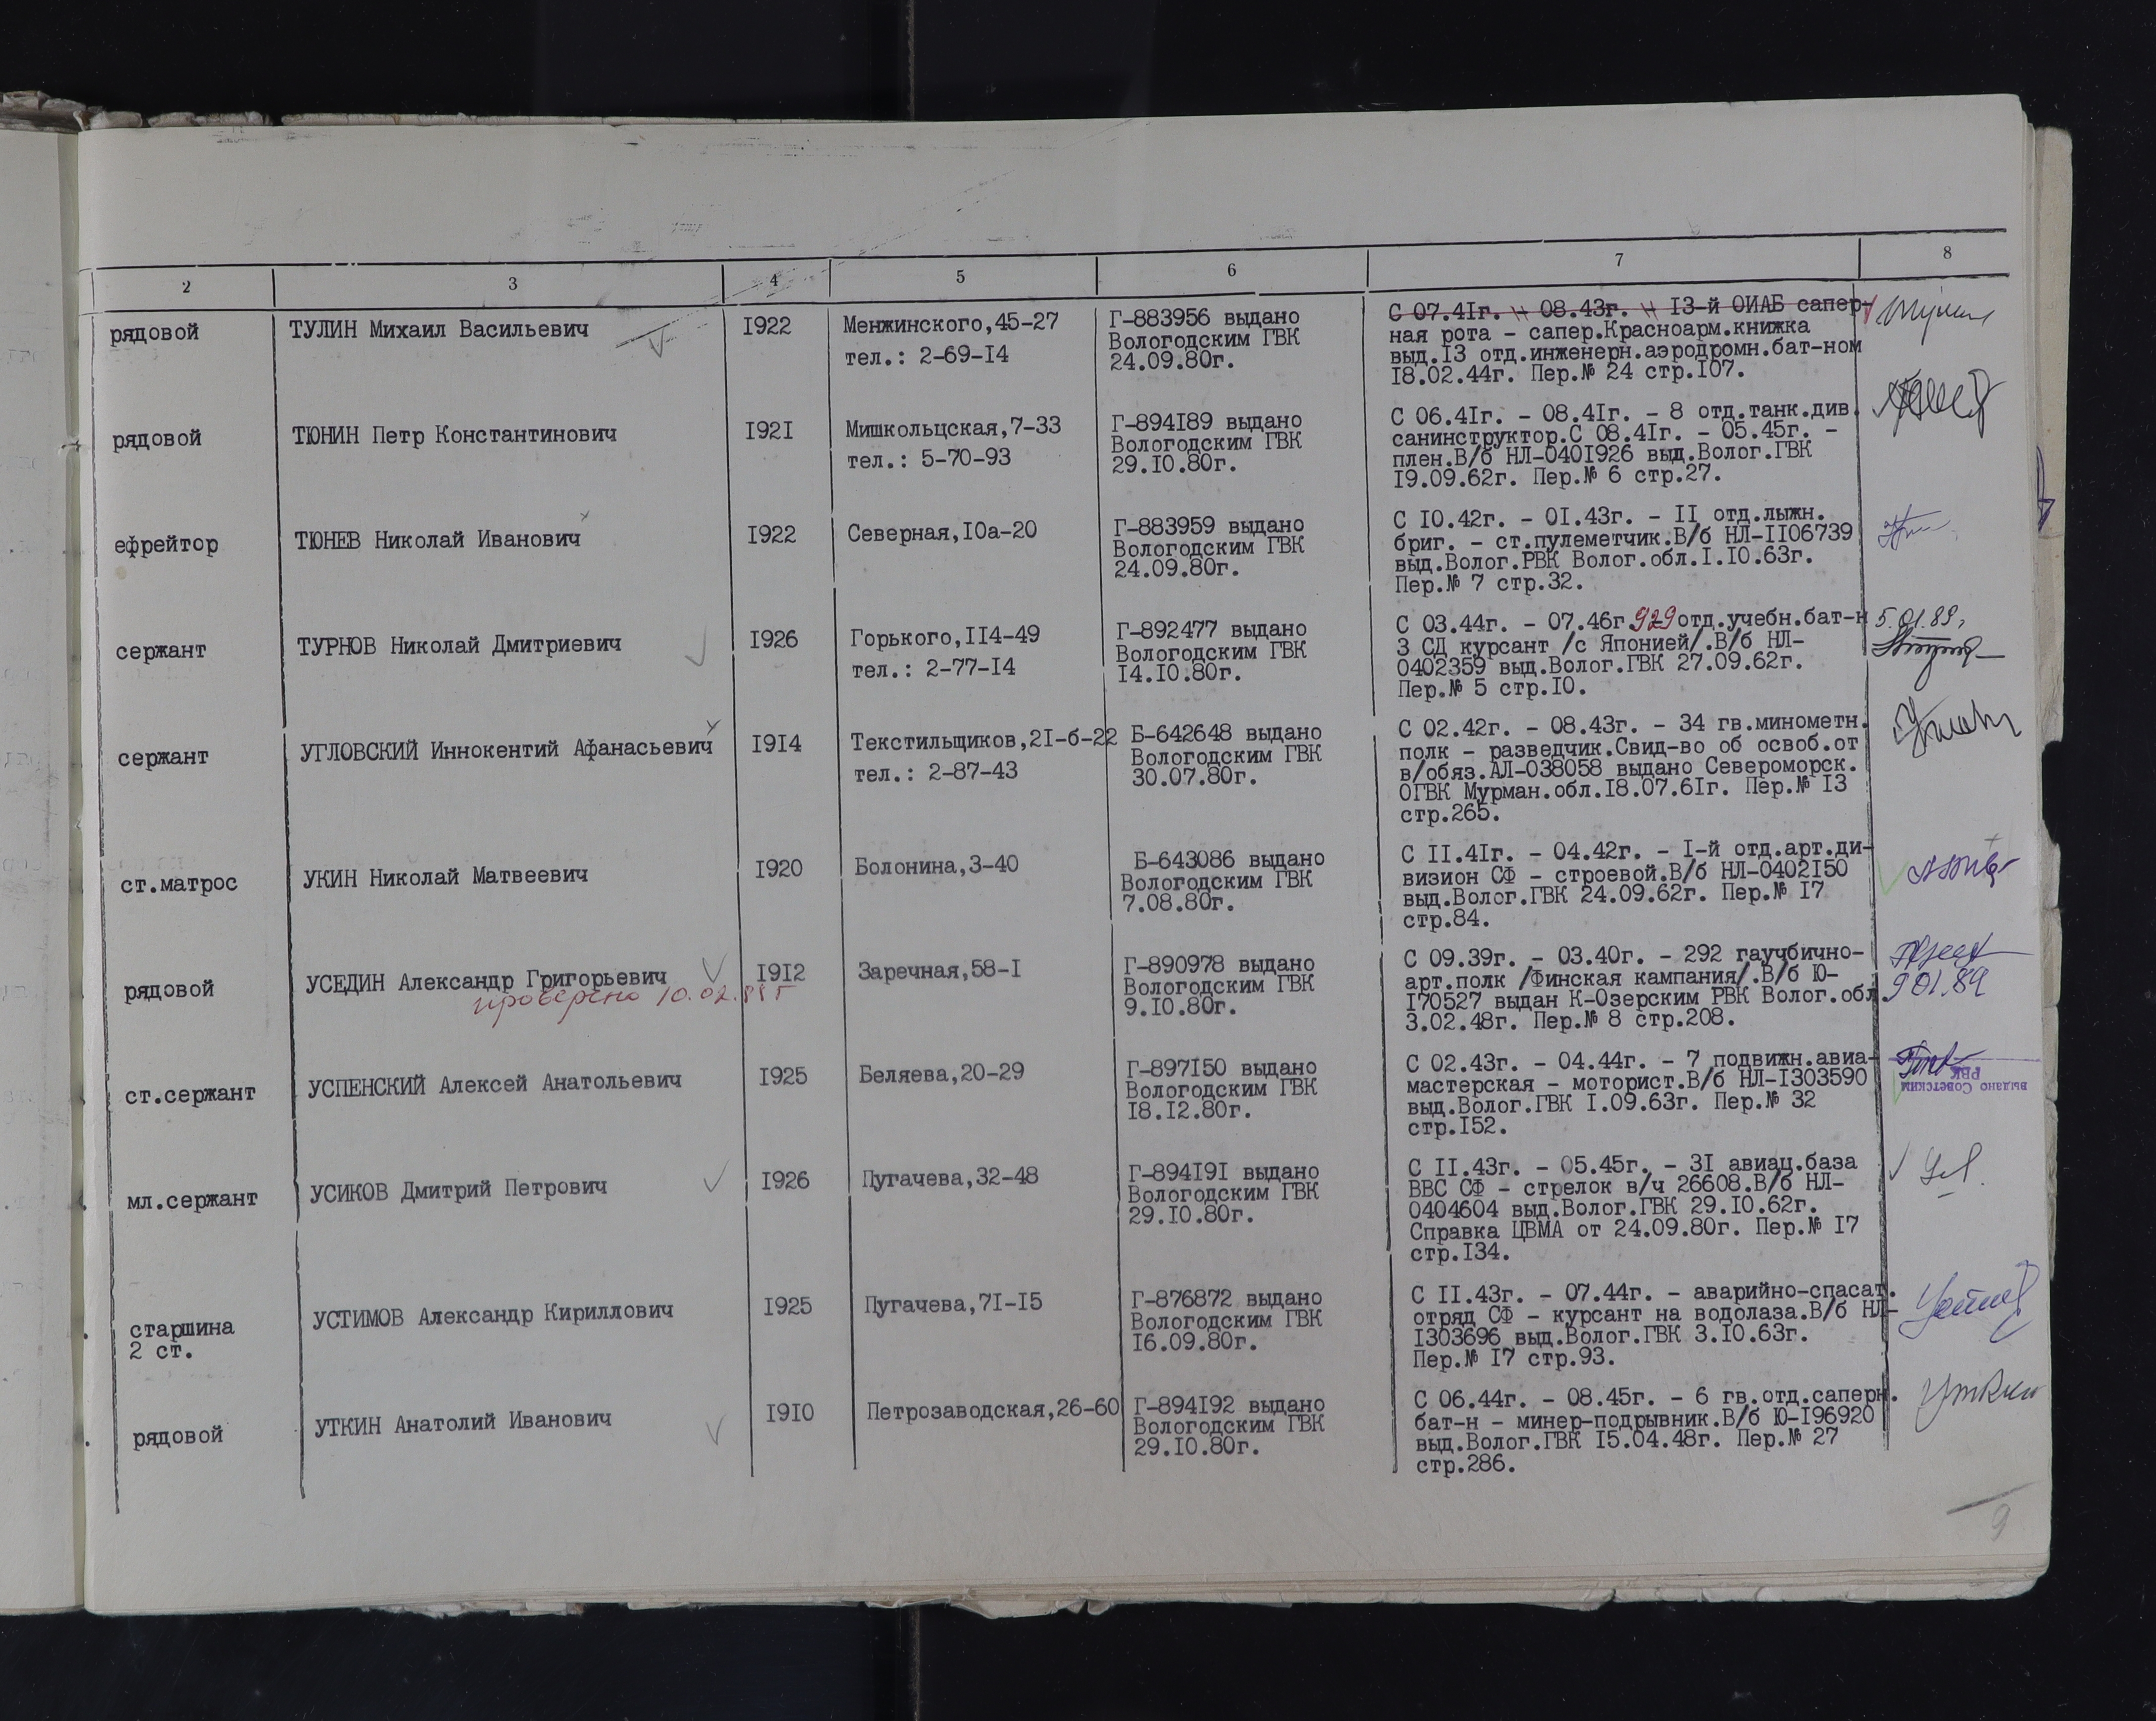 2 3 4 5 6 7 8
рядовой ТУЛИН Михаил Васильевич 1922 Менжинского,45-27 Г-883956 выдано С 07.41г. - 08.43г. - 13-й ОИАБ сапер-
тел.: 2-69-14 Вологодским ГВК ная рота - сапер.Красноарм.книжка
24.09.80г. выд.13 отд.инженерн.аэродромн.бат-ном
18.02.44г. Пер.№ 24 стр.107.
рядовой ТЮНИН Петр Константинович 1921 Мишкольцская,7-33 Г-894189 выдано С 06.41г. - 08.41г. - 8 отд.танк.див.
тел.: 5-70-93 Вологодским ГВК санинструктор.С 08.41г. - 05.45г. -
29.10.80г. плен.В/б НЛ-0401926 выд.Волог.ГВК
19.09.62г. Пер.№ 6 стр.27.
ефрейтор ТЮНЕВ Николай Иванович 1922 Северная,10а-20 Г-883959 выдано С 10.42г. - 01.43г. - 11 отд.лыжн.
Вологодским ГВК бриг. - ст.пулеметчик.В/б НЛ-1106739
24.09.80г. выд.Волог.РВК Волог.обл.1.10.63г.
Пер.№ 7 стр.32.
сержант ТУРНОВ Николай Дмитриевич 1926 Горького,114-49 Г-892477 выдано С 03.44г. - 07.46г 929 отд.учебн.бат-н 5.01.89,
тел.: 2-77-14 Вологодским ГВК 3 СД курсант /с Японией/.В/б НЛ-
14.10.80г. 0402359 выд.Волог.ГВК 27.09.62г.
Пер.№ 5 стр.10.
сержант УГЛОВСКИЙ Иннокентий Афанасьевич 1914 Текстильщиков,21-б-22 Б-642648 выдано С 02.42г. - 08.43г. - 34 гв.минометн.
тел.: 2-87-43 Вологодским ГВК полк - разведчик.Свид-во об освоб.от
30.07.80г. в/обяз.АЛ-038058 выдано Североморск.
ОГВК Мурман.обл.18.07.61г. Пер.№ 13
стр.265.
ст.матрос УКИН Николай Матвеевич 1920 Болонина,3-40 Б-643086 выдано С 11.41г. - 04.42г. - 1-й отд.арт.ди-
Вологодским ГВК визион СФ - строевой.В/б НЛ-0402150
7.08.80г. выд.Волог.ГВК 24.09.62г. Пер.№ 17
стр.84.
рядовой УСЕДИН Александр Григорьевич 1912 Заречная,58-1 Г-890978 выдано С 09.39г. - 03.40г. - 292 гаучбично-
проверено 10.02.89г Вологодским ГВК арт.полк /Финская кампания/.В/б Ю-
9.10.80г. 170527 выдан К-Озерским РВК Волог.обл. 9.01.89
3.02.48г. Пер.№ 8 стр.208.
ст.сержант УСПЕНСКИЙ Алексей Анатольевич 1925 Беляева,20-29 Г-897150 выдано С 02.43г. - 04.44г. - 7 подвижн.авиа-
Вологодским ГВК мастерская - моторист.В/б НЛ-1303590
18.12.80г. выд.Волог.ГВК 1.09.63г. Пер.№ 32
стр.152.
выдано Советским
РВК
мл.сержант УСИКОВ Дмитрий Петрович 1926 Пугачева,32-48 Г-894191 выдано С 11.43г. - 05.45г. - 31 авиац.база
Вологодским ГВК ВВС СФ - стрелок в/ч 26608.В/б НЛ-
29.10.80г. 0404604 выд.Волог.ГВК 29.10.62г.
Справка ЦВМА от 24.09.80г. Пер.№ 17
стр.134.
старшина УСТИМОВ Александр Кириллович 1925 Пугачева,71-15 Г-876872 выдано С 11.43г. - 07.44г. - аварийно-спасат.
2 ст. Вологодским ГВК отряд СФ - курсант на водолаза.В/б НЛ-
16.09.80г. 1303696 выд.Волог.ГВК 3.10.63г.
Пер.№ 17 стр.93.
рядовой УТКИН Анатолий Иванович 1910 Петрозаводская,26-60 Г-894192 выдано С 06.44г. - 08.45г. - 6 гв.отд.саперн. Уткин
Вологодским ГВК бат-н - минер-подрывник.В/б Ю-196920
29.10.80г. выд.Волог.ГВК 15.04.48г. Пер.№ 27
стр.286.
9